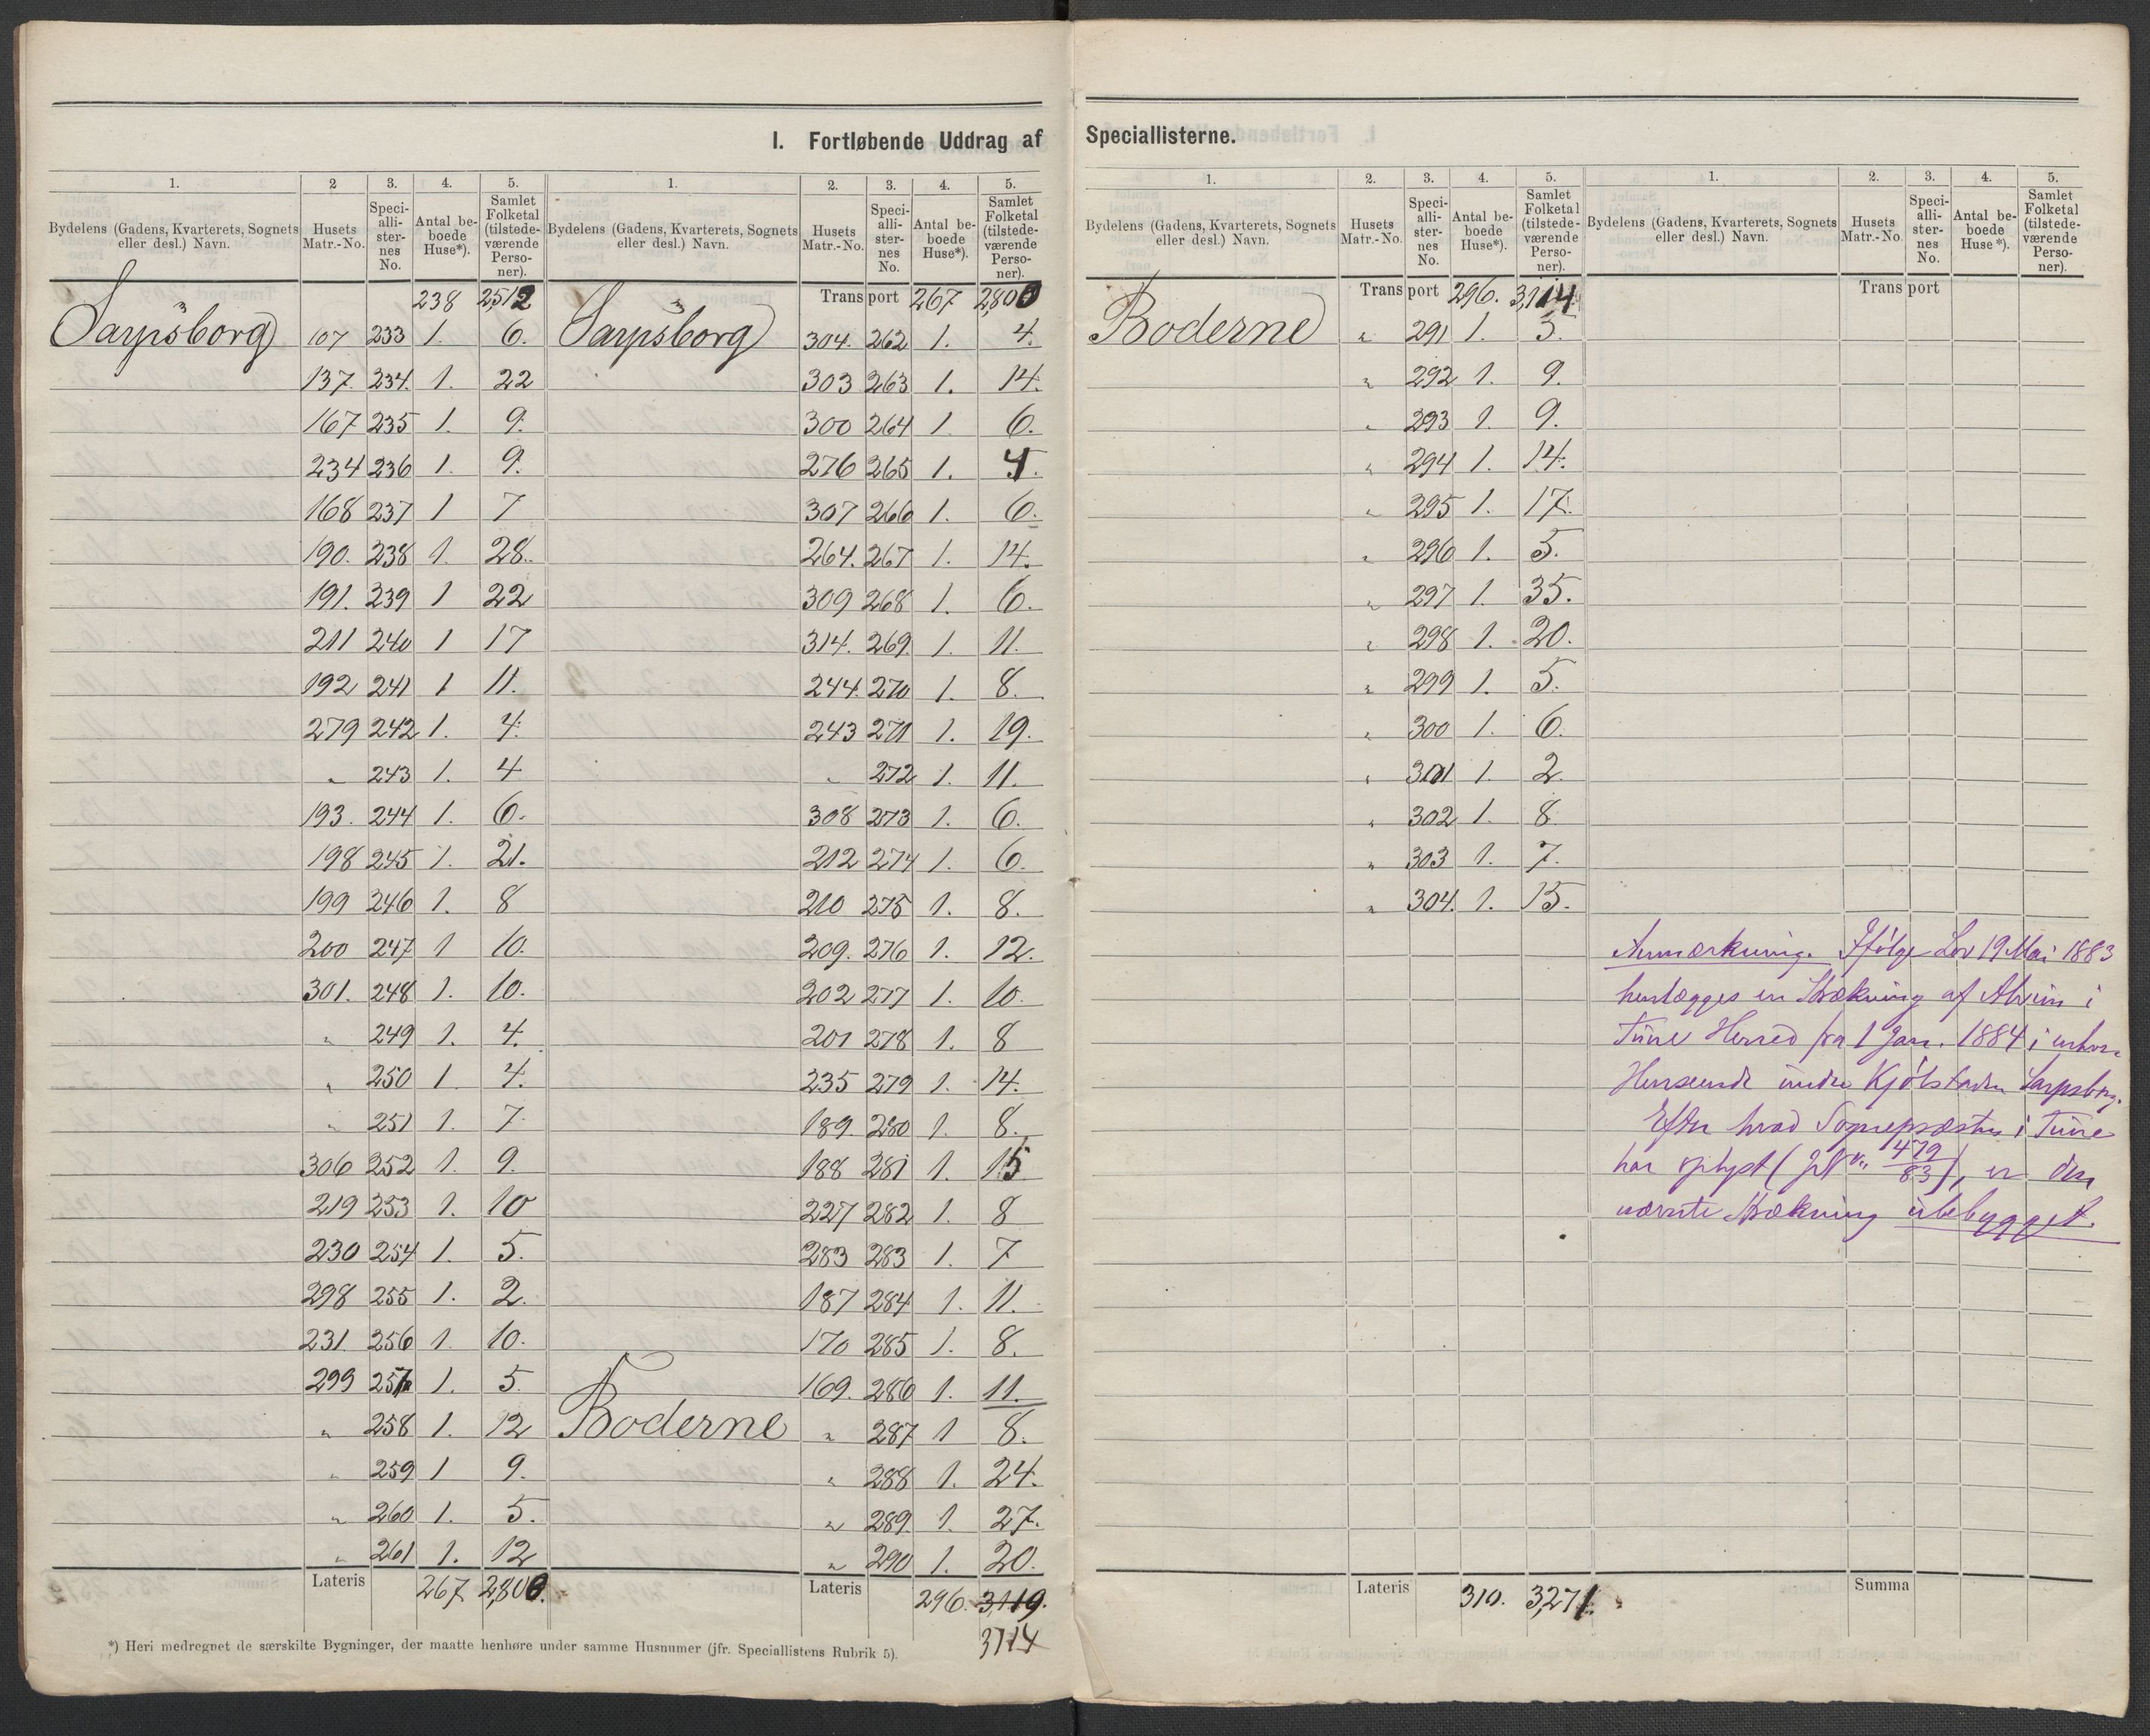 I. Fortløbende Uddrag af Speciallisterne.
1. 2 3. 4. 5. 1. 2. 3. 4. 5.
Bydelens (Gadens, Kvarterets, Sognets eller desl.) Navn. Husets Matr.-No. Speciallisternes No. Antal beboede Huse*). Samlet Folketal (tilstedeværende Personer). Bydelens (Gadens, Kvarterets, Sognets eller desl.) Navn. Husets Matr.-No. Speciallisternes No. Antal beboede Huse*). Samlet Folketal (tilstedeværende Personer).
238 2512 Transport 267 2,800
Sarpsborg 107 233 1. 6. Sarpsborg 304. 262 1. 4.
137. 234. 1. 22 303 263 1. 14.
167 235 1. 9. 300 264 1 6.
234 236 1. 9. 276 265 1.
168 237 1 7 307 266 1. 6.
190. 238 1. 28. 264. 267 1. 14.
191. 239 1 22 309 268 1. 6.
211 240 1 17 314. 269. 1. 11.
192 241 1 11. 244. 270 1. 8.
279 242 1. 4. 243 271 1. 19.
" 243 1. 4 " 272 1. 11.
193. 244 1. 6. 308 273 1. 6.
198 245 1. 21. 212 274 1. 6.
199 246 1. 8 210 275 1. 8.
200 247 1 10. 209. 276 1. 12.
301. 248 1. 10. 202 277 1. 10.
" 249 1. 4. 201 278 1. 8
" 250 1. 4. 235 279 1. 14.
" 251 1. 7. 189. 280 1. 8.
306 252 1. 9. 188 281 1. 15
219 253 1. 10 227 282 1. 8
230 254 1. 5. 283 283 1. 7
298 255 1. 2. 187 284 1. 11.
231. 256 1. 10. 170 285 1. 8.
299 257 1. 5. 169. 286 1. 11.
" 258 1. 12 Boderne " 287 1 8.
" 259 1 9. " 288 1. 24.
" 260 1. 5. " 289. 1. 27.
" 261 1. 12 " 290 1. 20.
Lateris 267 2,800. Lateris 296. 3,119.
3114
*) Heri medregnet de særskilte Bygninger, der maatte henhøre under samme Husnumer (jfr. Speciallistens Rubrik 5).
1. 2. 3. 4. 5. 1. 2. 3. 4. 5.
Bydelens (Gadens, Kvarterets, Sognets eller desl.) Navn. Husets Matr.-No. Speciallisternes No. Antal beboede Huse*). Samlet Folketal (tilstedeværende Personer). Bydelens (Gadens, Kvarterets, Sognets eller desl.) Navn. Husets Matr.-No. Speciallisternes No. Antal beboede Huse*). Samlet Folketal (tilstedeværende Personer).
Transport 296. 3,114. Transport
Boderne " 291 1. 5.
" 292 1. 9.
" 293 1. 9.
" 294 1. 14.
" 295 1. 17.
" 296 1. 5.
" 297 1. 35.
" 298 1. 20.
" 299 1. 5.
" 300 1. 6.
" 301 1. 2.
" 302 1. 8.
" 303 1. 7.
" 304. 1. 15.
Anmærkning. Ifølge Lov 19 Mai 1883
henlægges en Strækning af Alvim i
Tune Herred fra 1 Jan. 1884 i enhver
Henseende under Kjøbstaden Sarpsborg.
Efter hvad Sognepræsten i Tune
har oplyst 479/83), er den
nævnte Strækning ubebygget.
Lateris 310. 3,271. Summa